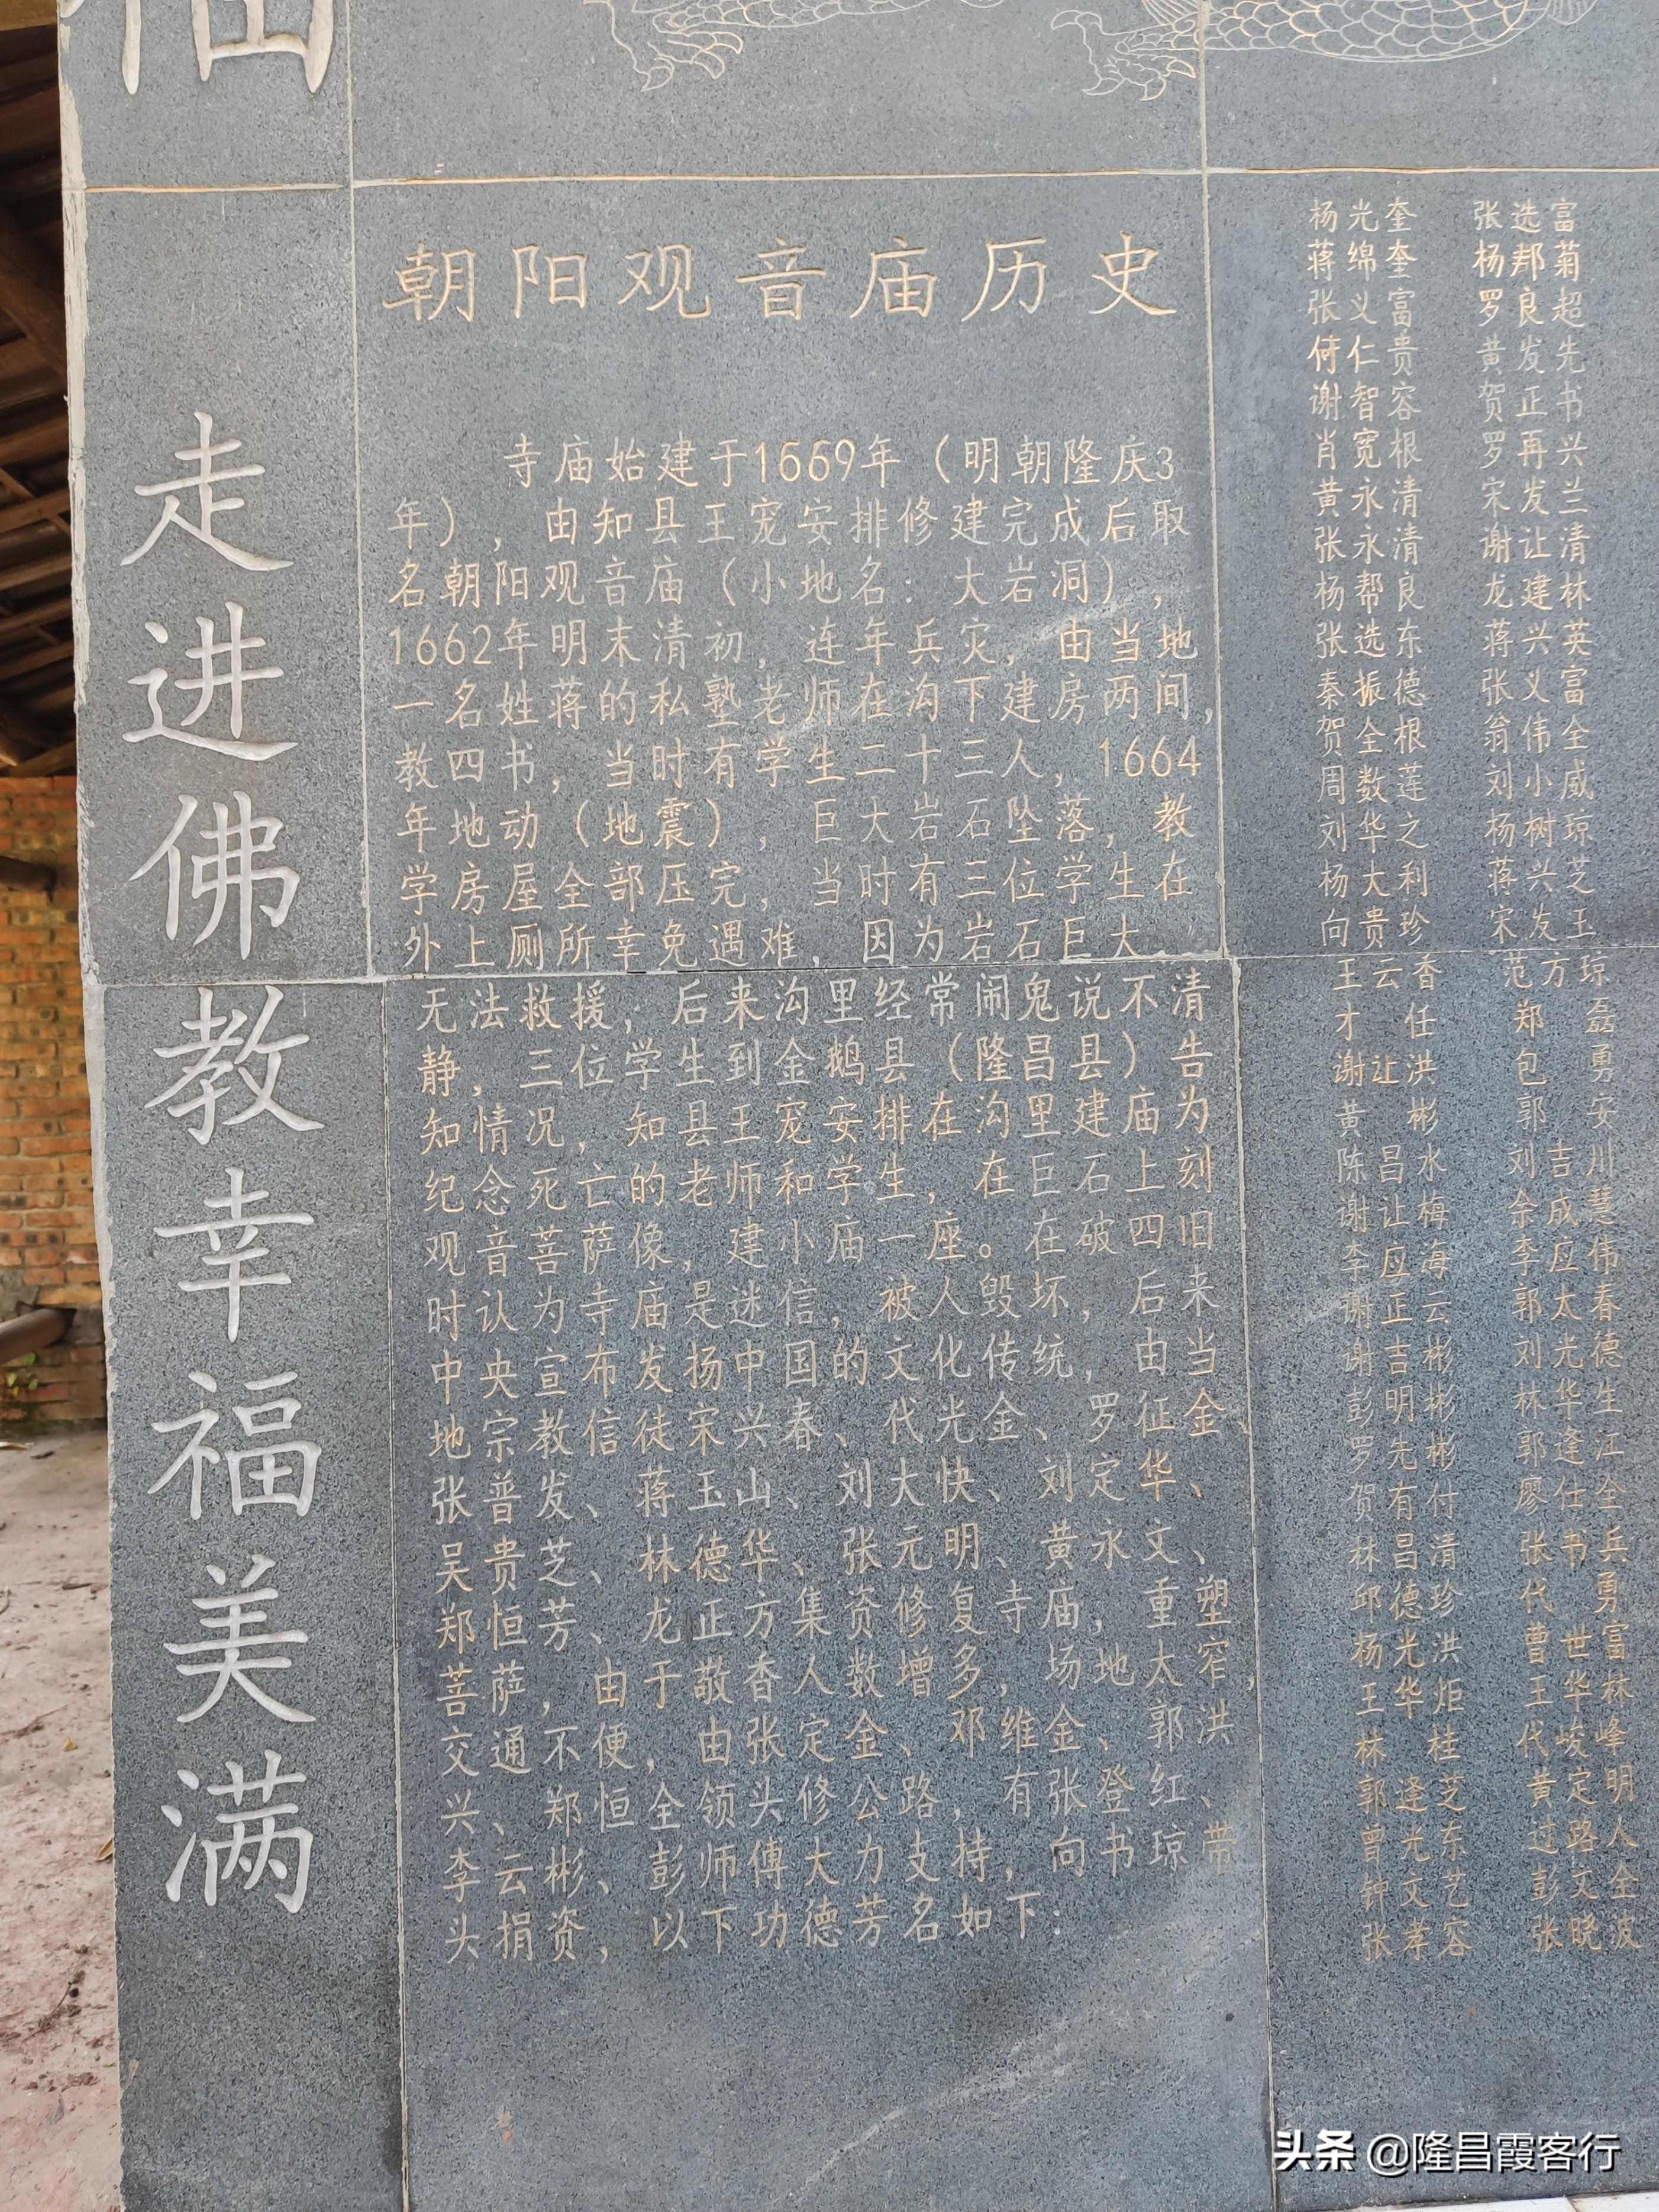 走进佛教幸福美满
朝阳观音庙历史
寺庙始建于1669年（明朝隆庆3
年），由知县王宠安排修建完成后取
名朝阳观音庙（小地名：大岩洞），
1662年明末清初，连年兵灾，由当地
一名姓蒋的私塾老师在沟下建房两间，
教四书，当时有学生二十三人，1664
年地动（地震），巨大岩石坠落，教
学房屋全部压完，当时有三位学生在
外上厕所幸免遇难，因为岩石巨大
无法救援，后来沟里经常闹鬼说不清
静，三位学生到金鹅县（隆昌县）告
知情况，知县王宠安排在沟里建庙为
纪念死亡的老师和学生，在巨石上刻
观音菩萨像，建小庙一座。在破四旧
时认为寺庙是迷信，被人毁坏，后来
中央宣布发扬中国的文化传统，由当
地宗教信徒宋兴春、代光金、罗征金、
张普发、蒋玉山、刘大快、刘定华、
吴贵芝、林德华、张元明、黄永文、
郑恒芳、龙正方集资修复寺庙，重塑
菩萨，由于敬香人数增多，场地太窄，
交通不便，由张定金、邓维金、郭洪
兴、郑恒全领头修公路，有张登红、
李云彬、彭师傅大力支持，向书琼带
头捐资，以下功德芳名如下：
杨光奎
蒋绵奎
张义富
仁贵
谢智容
肖宽根
黄永清
张永清
杨帮良
张选东
秦振德
贺全根
周数莲
刘华之
杨大利
向贵珍
王云香
才任
谢让洪
黄彬
陈昌水
谢让梅
李应海
谢正云
谢吉彬
彭明彬
罗先彬
贺有付
林昌清
邱德珍
杨光洪
王华炬
林桂
郭逢芝
曾光东
钟文艺
张孝容
张选富
杨邦菊
罗良超
黄发先
贺正书
罗再兴
宋发兰
谢让清
龙建林
蒋兴英
张义富
翁伟全
刘小威
杨树琼
蒋兴芝
宋发玉
范方琼
郑磊
包勇
郭安
刘吉川
余成慧
李应伟
郭太春
刘光德
林华生
郭逢江
廖仕全
张书兵
代勇
曹世富
王华林
代峻峰
黄定明
过路人
彭文全
张晓波
头条 @隆昌霞客行